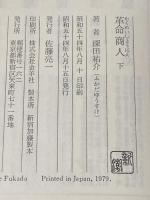 革命商人 下
著者 深田祐介（ふかだゆうすけ）
昭和五十四年八月 十 日印刷
昭和五十四年八月十五日発行
発行者 佐藤亮一
印刷所 株式会社金羊社 製本所 新宿加藤製本
発行所
郵便番号一六二
東京都新宿区矢来町七十一番地
Fukada Printed in Japan, 1979.